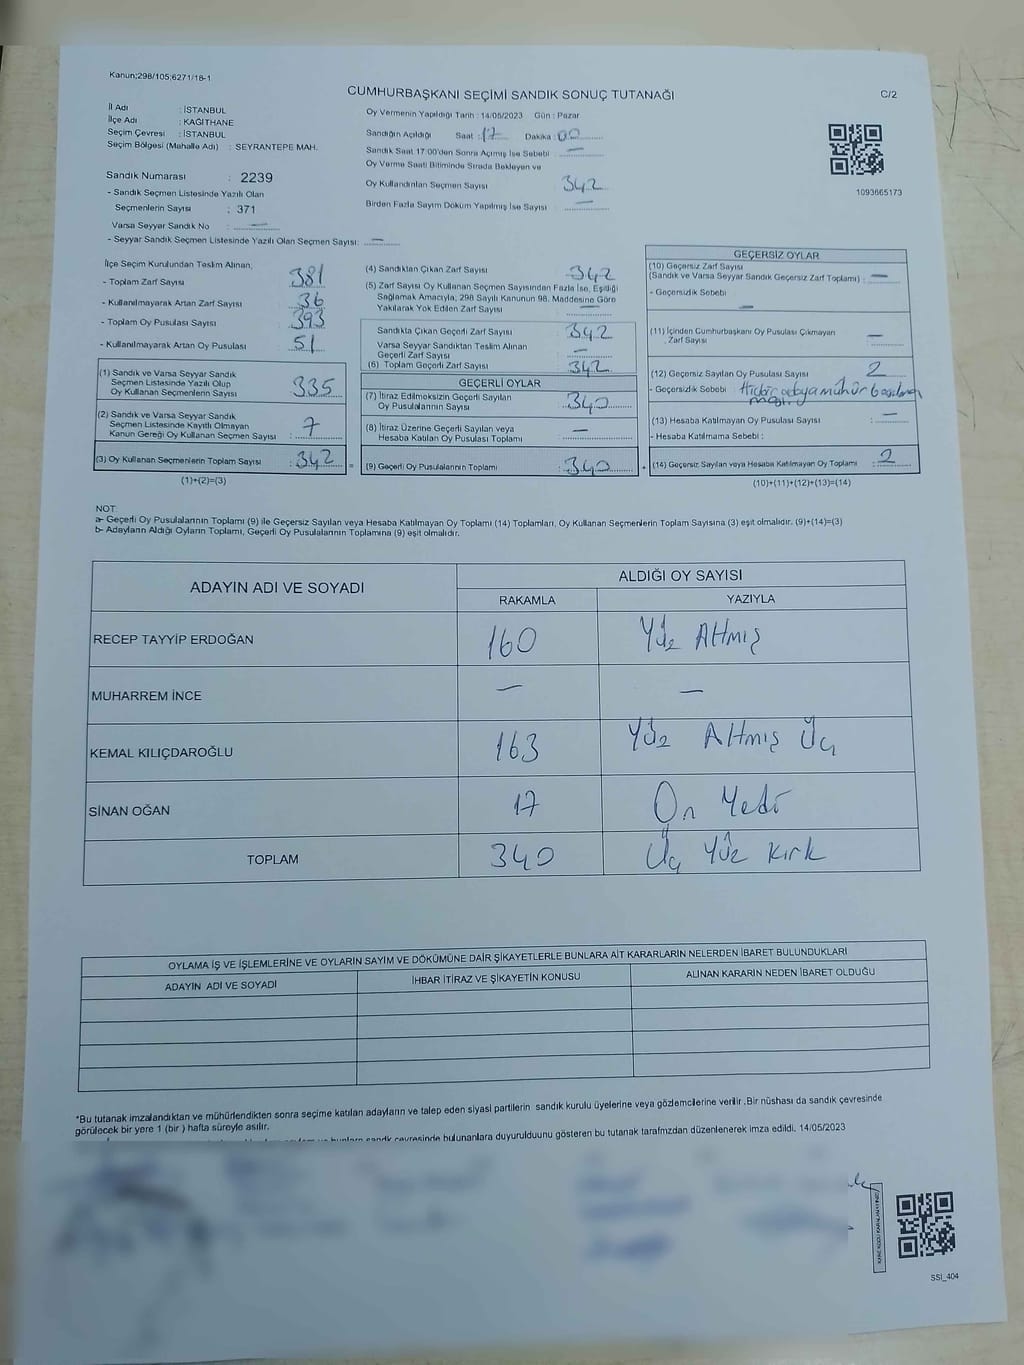 Kanun;298/105;6271/18-1
CUMHURBAŞKANI SEÇİMİ SANDIK SONUÇ TUTANAĞI
C/2
İl Adı : İSTANBUL
İlçe Adı : KAĞITHANE
Seçim Çevresi : İSTANBUL
Seçim Bölgesi (Mahalle Adı) : SEYRANTEPE MAH.
Sandık Numarası : 2239
- Sandık Seçmen Listesinde Yazılı Olan
Seçmenlerin Sayısı : 371
Varsa Seyyar Sandık No : —
- Seyyar Sandık Seçmen Listesinde Yazılı Olan Seçmen Sayısı: —
Oy Vermenin Yapıldığı Tarih : 14/05/2023 Gün : Pazar
Sandığın Açıldığı Saat : 17 Dakika : 00
Sandık Saat 17:00'den Sonra Açımış İse Sebebi : —
Oy Verme Saati Bitiminde Sırada Bekleyen ve
Oy Kullandırılan Seçmen Sayısı : 342
Birden Fazla Sayım Döküm Yapılmış İse Sayısı : —
1093665173
İlçe Seçim Kurulundan Teslim Alınan;
- Toplam Zarf Sayısı : 381
- Kullanılmayarak Artan Zarf Sayısı : 36
- Toplam Oy Pusulası Sayısı : 393
- Kullanılmayarak Artan Oy Pusulası : 51
(1) Sandık ve Varsa Seyyar Sandık
Seçmen Listesinde Yazılı Olup
Oy Kullanan Seçmenlerin Sayısı : 335
(2) Sandık ve Varsa Seyyar Sandık
Seçmen Listesinde Kayıtlı Olmayan
Kanun Gereği Oy Kullanan Seçmen Sayısı : 7
(3) Oy Kullanan Seçmenlerin Toplam Sayısı : 342
(1)+(2)=(3)
(4) Sandıktan Çıkan Zarf Sayısı : 342
(5) Zarf Sayısı Oy Kullanan Seçmen Sayısından Fazla İse, Eşitliği
Sağlamak Amacıyla; 298 Sayılı Kanunun 98. Maddesine Göre
Yakılarak Yok Edilen Zarf Sayısı : —
Sandıkta Çıkan Geçerli Zarf Sayısı : 342
Varsa Seyyar Sandıktan Teslim Alınan
Geçerli Zarf Sayısı : —
(6) Toplam Geçerli Zarf Sayısı : 342
GEÇERLİ OYLAR
(7) İtiraz Edilmeksizin Geçerli Sayılan
Oy Pusulalarının Sayısı : 340
(8) İtiraz Üzerine Geçerli Sayılan veya
Hesaba Katılan Oy Pusulası Toplamı : —
(9) Geçerli Oy Pusulalarının Toplamı : 340
GEÇERSİZ OYLAR
(10) Geçersiz Zarf Sayısı
(Sandık ve Varsa Seyyar Sandık Geçersiz Zarf Toplamı) : —
- Geçersizlik Sebebi : —
(11) İçinden Cumhurbaşkanı Oy Pusulası Çıkmayan
Zarf Sayısı : —
(12) Geçersiz Sayılan Oy Pusulası Sayısı : 2
- Geçersizlik Sebebi : mühür
(13) Hesaba Katılmayan Oy Pusulası Sayısı : —
- Hesaba Katılmama Sebebi :
(14) Geçersiz Sayılan veya Hesaba Katılmayan Oy Toplamı : 2
(10)+(11)+(12)+(13)=(14)
NOT:
a- Geçerli Oy Pusulalarının Toplamı (9) ile Geçersiz Sayılan veya Hesaba Katılmayan Oy Toplamı (14) Toplamları, Oy Kullanan Seçmenlerin Toplam Sayısına (3) eşit olmalıdır. (9)+(14)=(3)
b- Adayların Aldığı Oyların Toplamı, Geçerli Oy Pusulalarının Toplamına (9) eşit olmalıdır.
ADAYIN ADI VE SOYADI ALDIĞI OY SAYISI
RAKAMLA YAZIYLA
RECEP TAYYİP ERDOĞAN 160 Yüz Altmış
MUHARREM İNCE — —
KEMAL KILIÇDAROĞLU 163 Yüz Altmış Üç
SİNAN OĞAN 17 On Yedi
TOPLAM 340 Üç Yüz Kırk
OYLAMA İŞ VE İŞLEMLERİNE VE OYLARIN SAYIM VE DÖKÜMÜNE DAİR ŞİKAYETLERLE BUNLARA AİT KARARLARIN NELERDEN İBARET BULUNDUKLARI
ADAYIN ADI VE SOYADI İHBAR İTİRAZ VE ŞİKAYETİN KONUSU ALINAN KARARIN NEDEN İBARET OLDUĞU
*Bu tutanak imzalandıktan ve mühürlendikten sonra seçime katılan adayların ve talep eden siyasi partilerin sandık kurulu üyelerine veya gözlemcilerine verilir .Bir nüshası da sandık çevresinde
görülecek bir yere 1 (bir ) hafta süreyle asılır.
sandık çevresinde bulunanlara duyurulduunu gösteren bu tutanak tarafımzdan düzenlenerek imza edildi. 14/05/2023
SSI_404